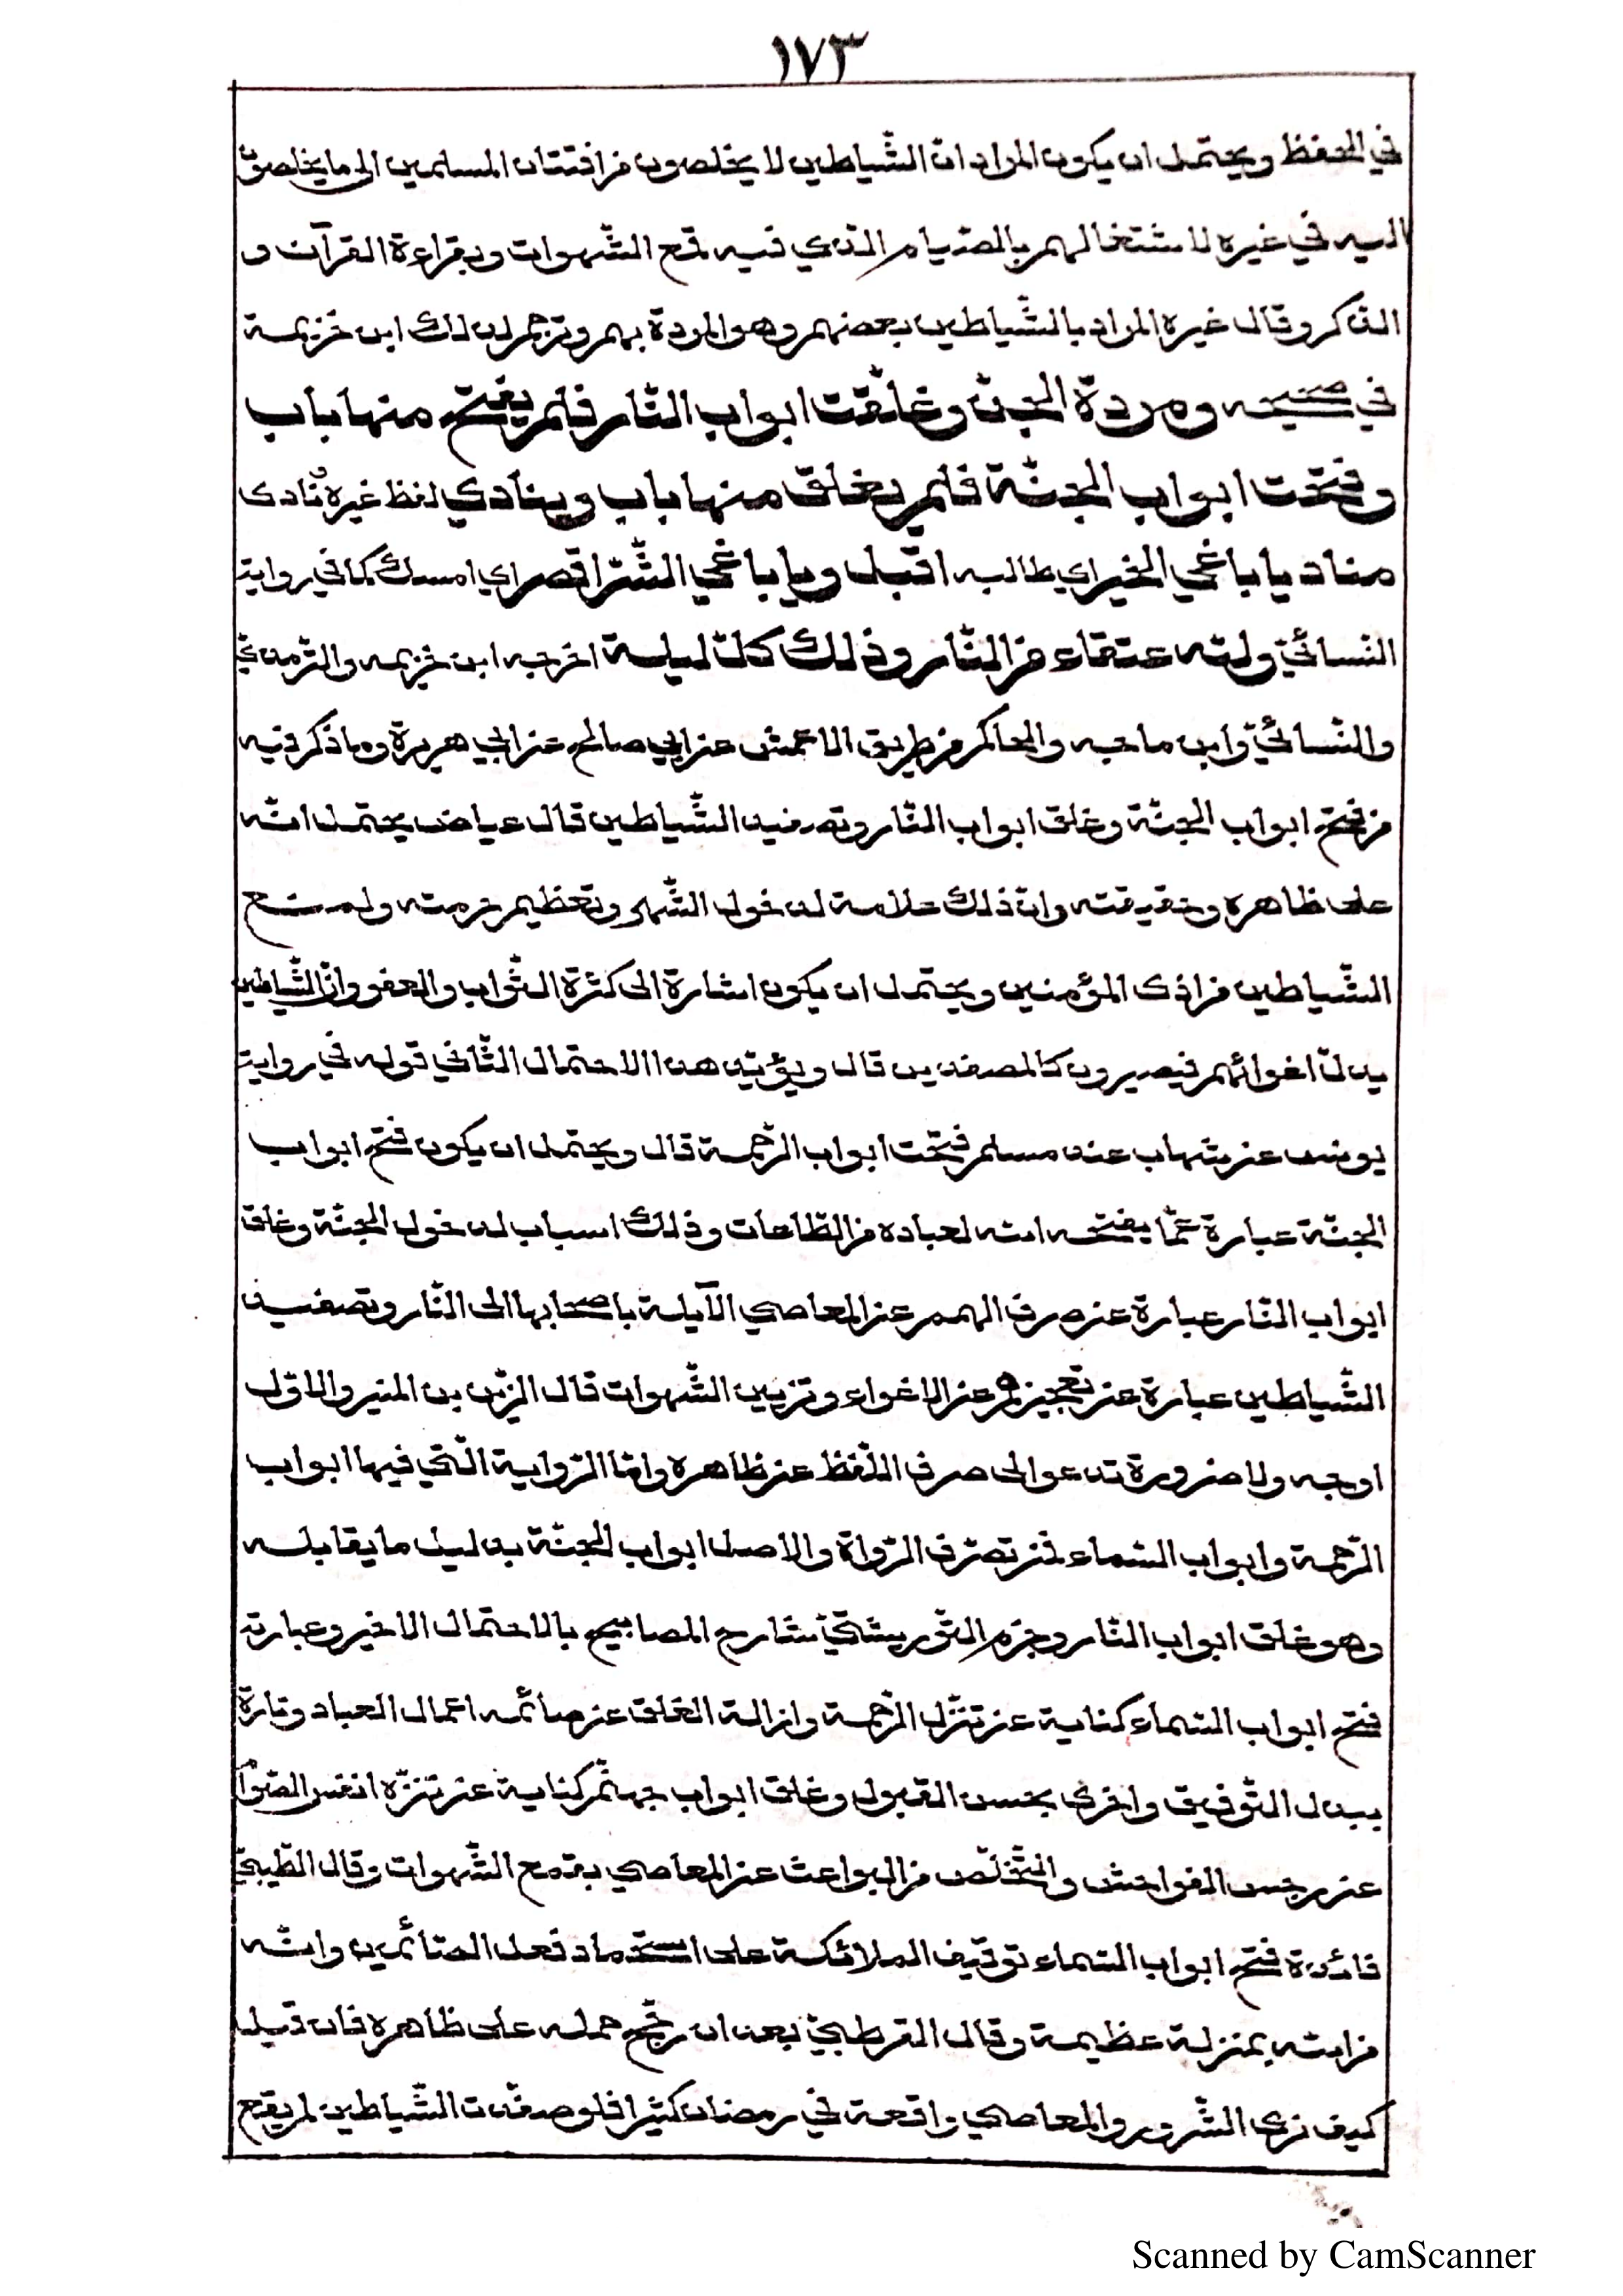 ١٧٣
في الحفظ ويحتمل ان يكون المراد انّ الشّياطين لا يخلصون من افتتان المسلمين الى ما يخلصون
اليه في غيره لاشتغالهم بالصّيام الّذي فيه قمع الشّهوات وبقراءة القرآن و
الذّكر وقال غيره المراد بالشّياطين بعضهم وهو المردة بهم وترجم لذلك ابن خزيمة
في صحيحه ومردة الجنّ وغلّقت ابواب النّار فلم يفتح منها باب
وفتحت ابواب الجنّة فلم يغلق منها باب وينادي لفظ غيره ونادى
مناد يا باغي الخير اي طالبه اقبل ويا باغي الشّرّ اقصر اي امسك كما في رواية
النّسائيّ ولله عتقاء من النّار وذلك كلّ ليلة اخرجه ابن خزيمه والتّرمذيّ
والنّسائيّ وابن ماجه والحاكم من طريق الاعمش عن ابي صالح عن ابي هريرة وما ذكر فيه
من فتح ابواب الجنّة وغلق ابواب النّار وتصفيد الشّياطين قال عياض يحتمل انّه
على ظاهره وحقيقته وانّ ذلك علامة لدخول الشّهر وتعظيم حرمته ولمنع
الشّياطين من اذى المؤمنين ويحتمل ان يكون اشارة الى كثرة الثّواب والعفو وانّ الشّياطين
يدلّ اغوائهم فيصيرون كالمصفدين قال ويؤيّد هذا الاحتمال الثّاني قوله في رواية
يونس عن شهاب عند مسلم فتحت ابواب الرّحمة قال ويحتمل ان يكون فتح ابواب
الجنّة عبارة عمّا يفتحه الله لعباده من الطّاعات وذلك اسباب لدخول الجنّة وغلق
ابواب النّار عبارة عن صرف الهمم عن المعاصي الآيلة باصحابها الى النّار وتصفيد
الشّياطين عبارة عن تعجيزهم عن الاغواء وتزيين الشّهوات قال الزّين بن المنير والاوّل
اوجه ولا ضرورة تدعو الى صرف اللّفظ عن ظاهره وامّا الرّواية الّتي فيها ابواب
الرّحمة وابواب السّماء فمن تصرّف الرّواة والاصل ابواب الجنّة بدليل ما يقابله
وهو غلق ابواب النّار وجزم التّوربشتيّ شارح المصابيح بالاحتمال الاخير وعبارته
فتح ابواب السّماء كناية عن تنزّل الرّحمة وازالة الغلق عن صائمه اعمال العباد وتارة
ببذل التّوفيق واخرى بحسن القبول وغلق ابواب جهنّم كناية عن تنزّه انفس الصّوّام
عن رجس الفواحش والتّخلّص من البواعث عن المعاصي بقمع الشّهوات وقال الطّيبيّ
فائدة فتح ابواب السّماء توقيف الملائكة على استحماد فعل الصّائمين وانّه
من الله بمنزلة عظيمة وقال القرطبيّ بعد ان رجّح حمله على ظاهره فان قيل
كيف نرى الشّرور والمعاصي واقعة في رمضان كثيرا فلو صفّدت الشّياطين لم يقع
Scanned by CamScanner